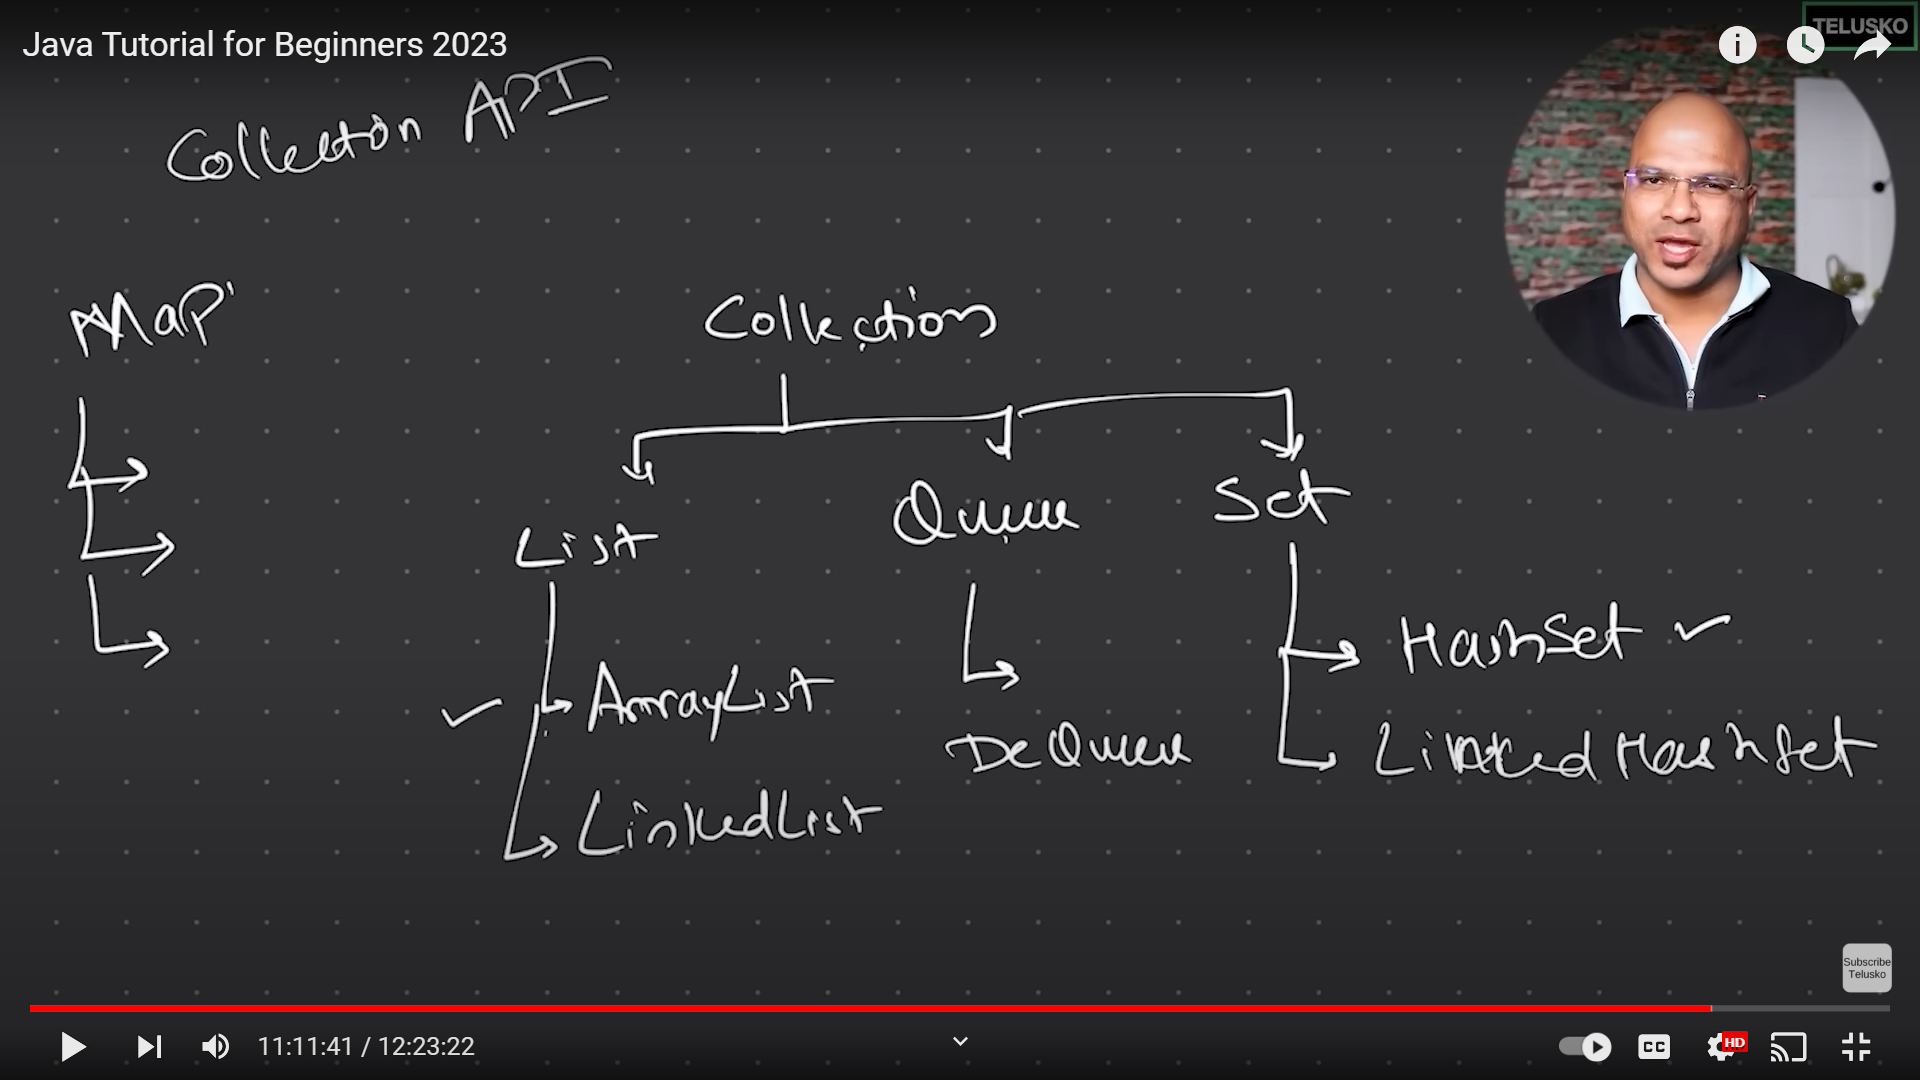 Java Tutorial for Beginners 2023
TELUSKO
Collection API
Map
Collections
List
Queue
Set
HashSet
ArrayList
DeQueue
LinkedHashSet
LinkedList
Subscribe
Telusko
11:11:41 / 12:23:22
CC
HD